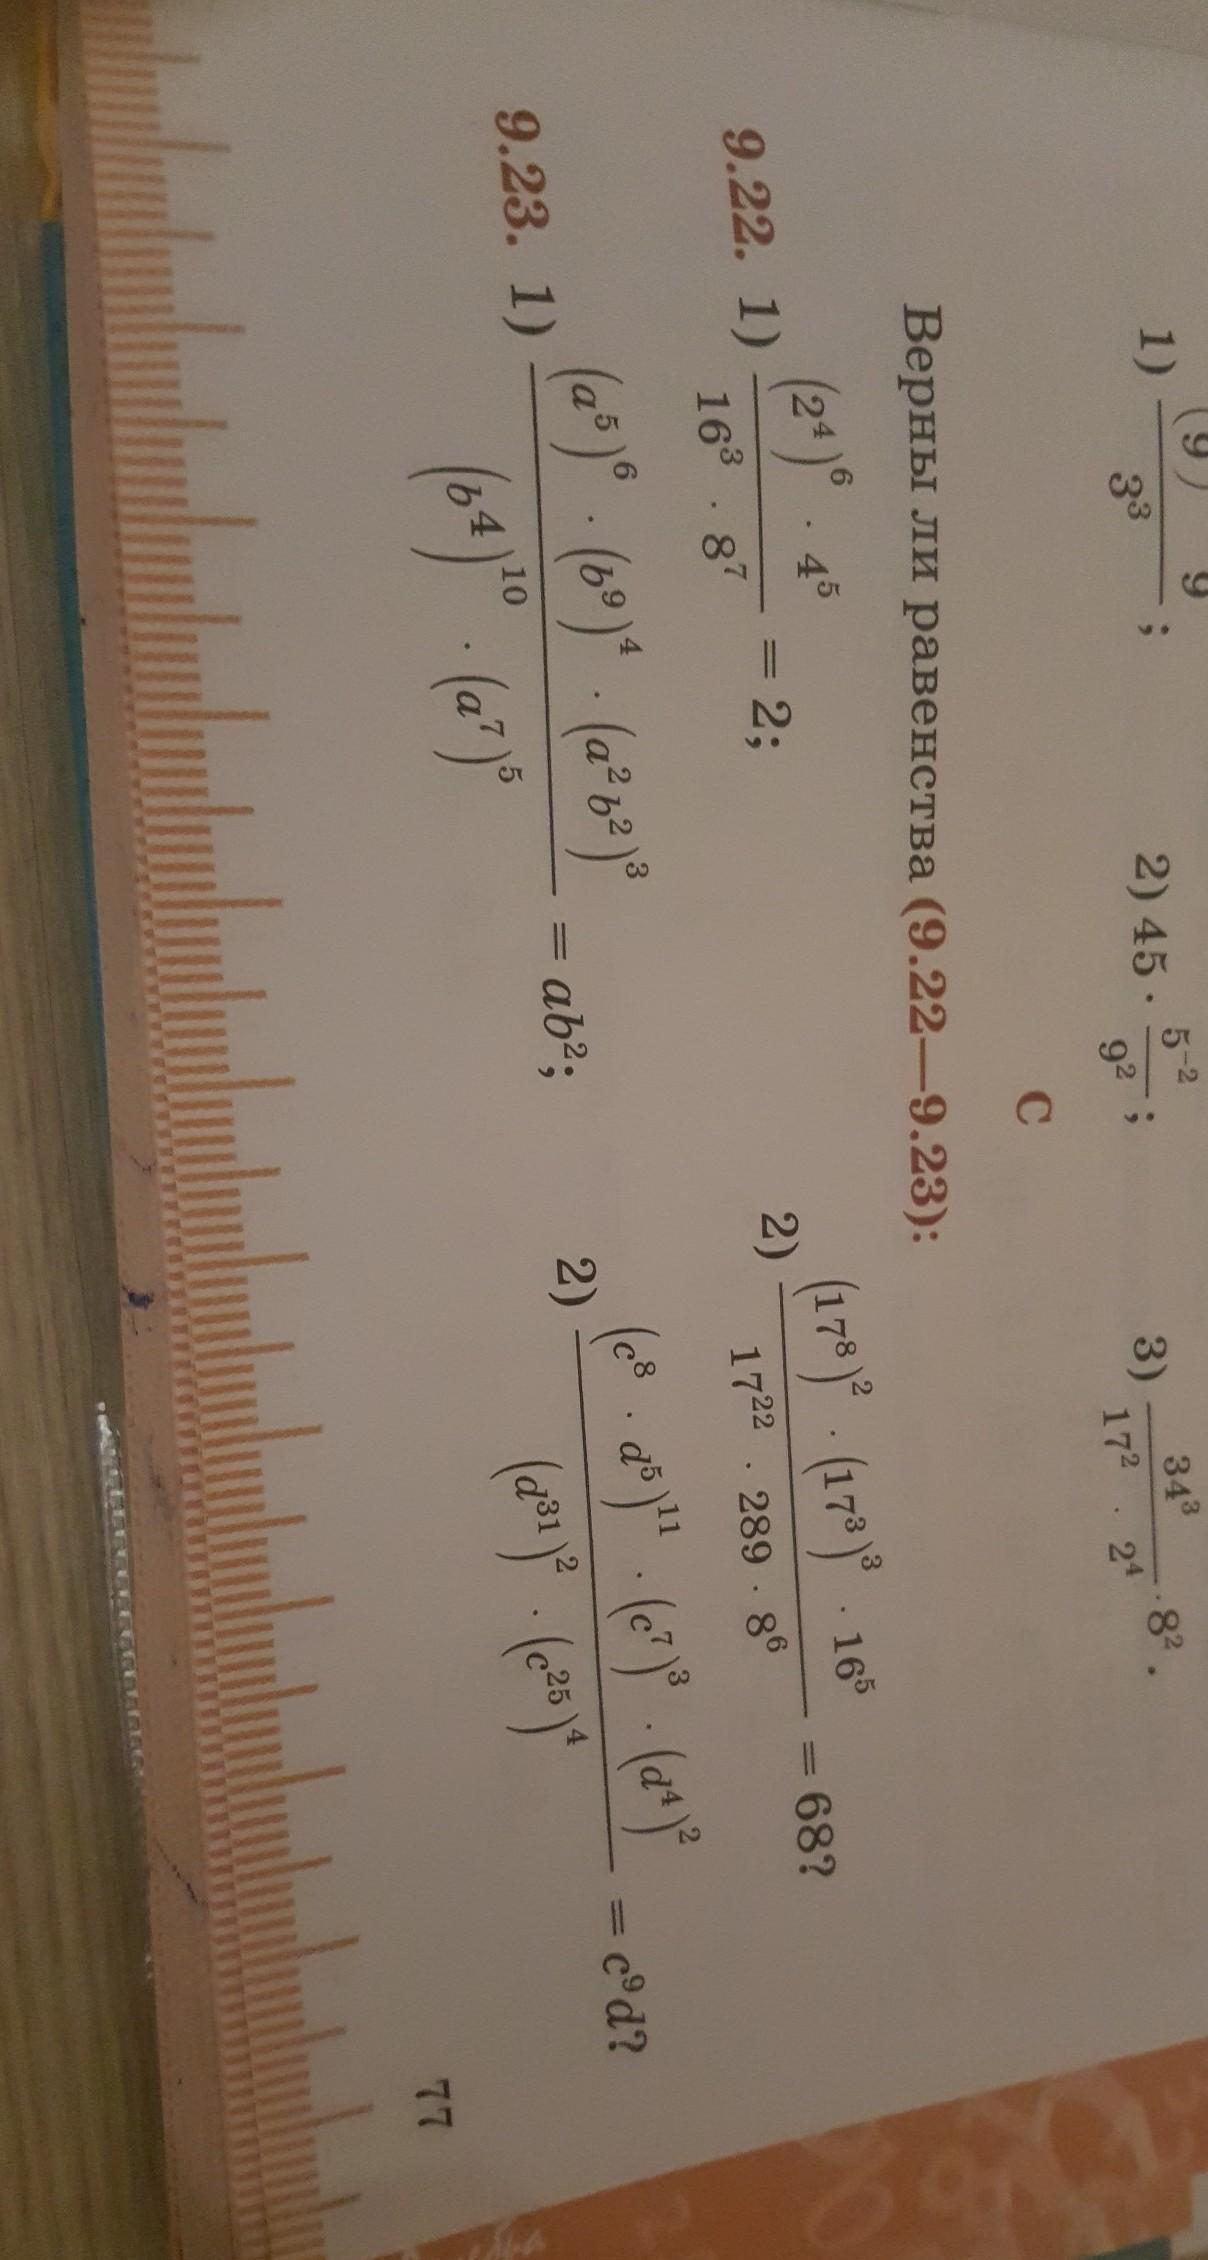 1) (9) 9 / 3³ ; 2) 45 · 5⁻² / 9² ; 3) 34³ / (17² · 2⁴) · 8² .
C
Верны ли равенства (9.22—9.23):
9.22. 1) (2⁴)⁶ · 4⁵ / (16³ · 8⁷) = 2; 2) (17⁸)² · (17³)³ · 16⁵ / (17²² · 289 · 8⁶) = 68?
9.23. 1) (a⁵)⁶ · (b⁹)⁴ · (a²b²)³ / ((b⁴)¹⁰ · (a⁷)⁵) = ab²; 2) (c⁸ · d⁵)¹¹ · (c⁷)³ · (d⁴)² / ((d³¹)² · (c²⁵)⁴) = c⁹d?
77